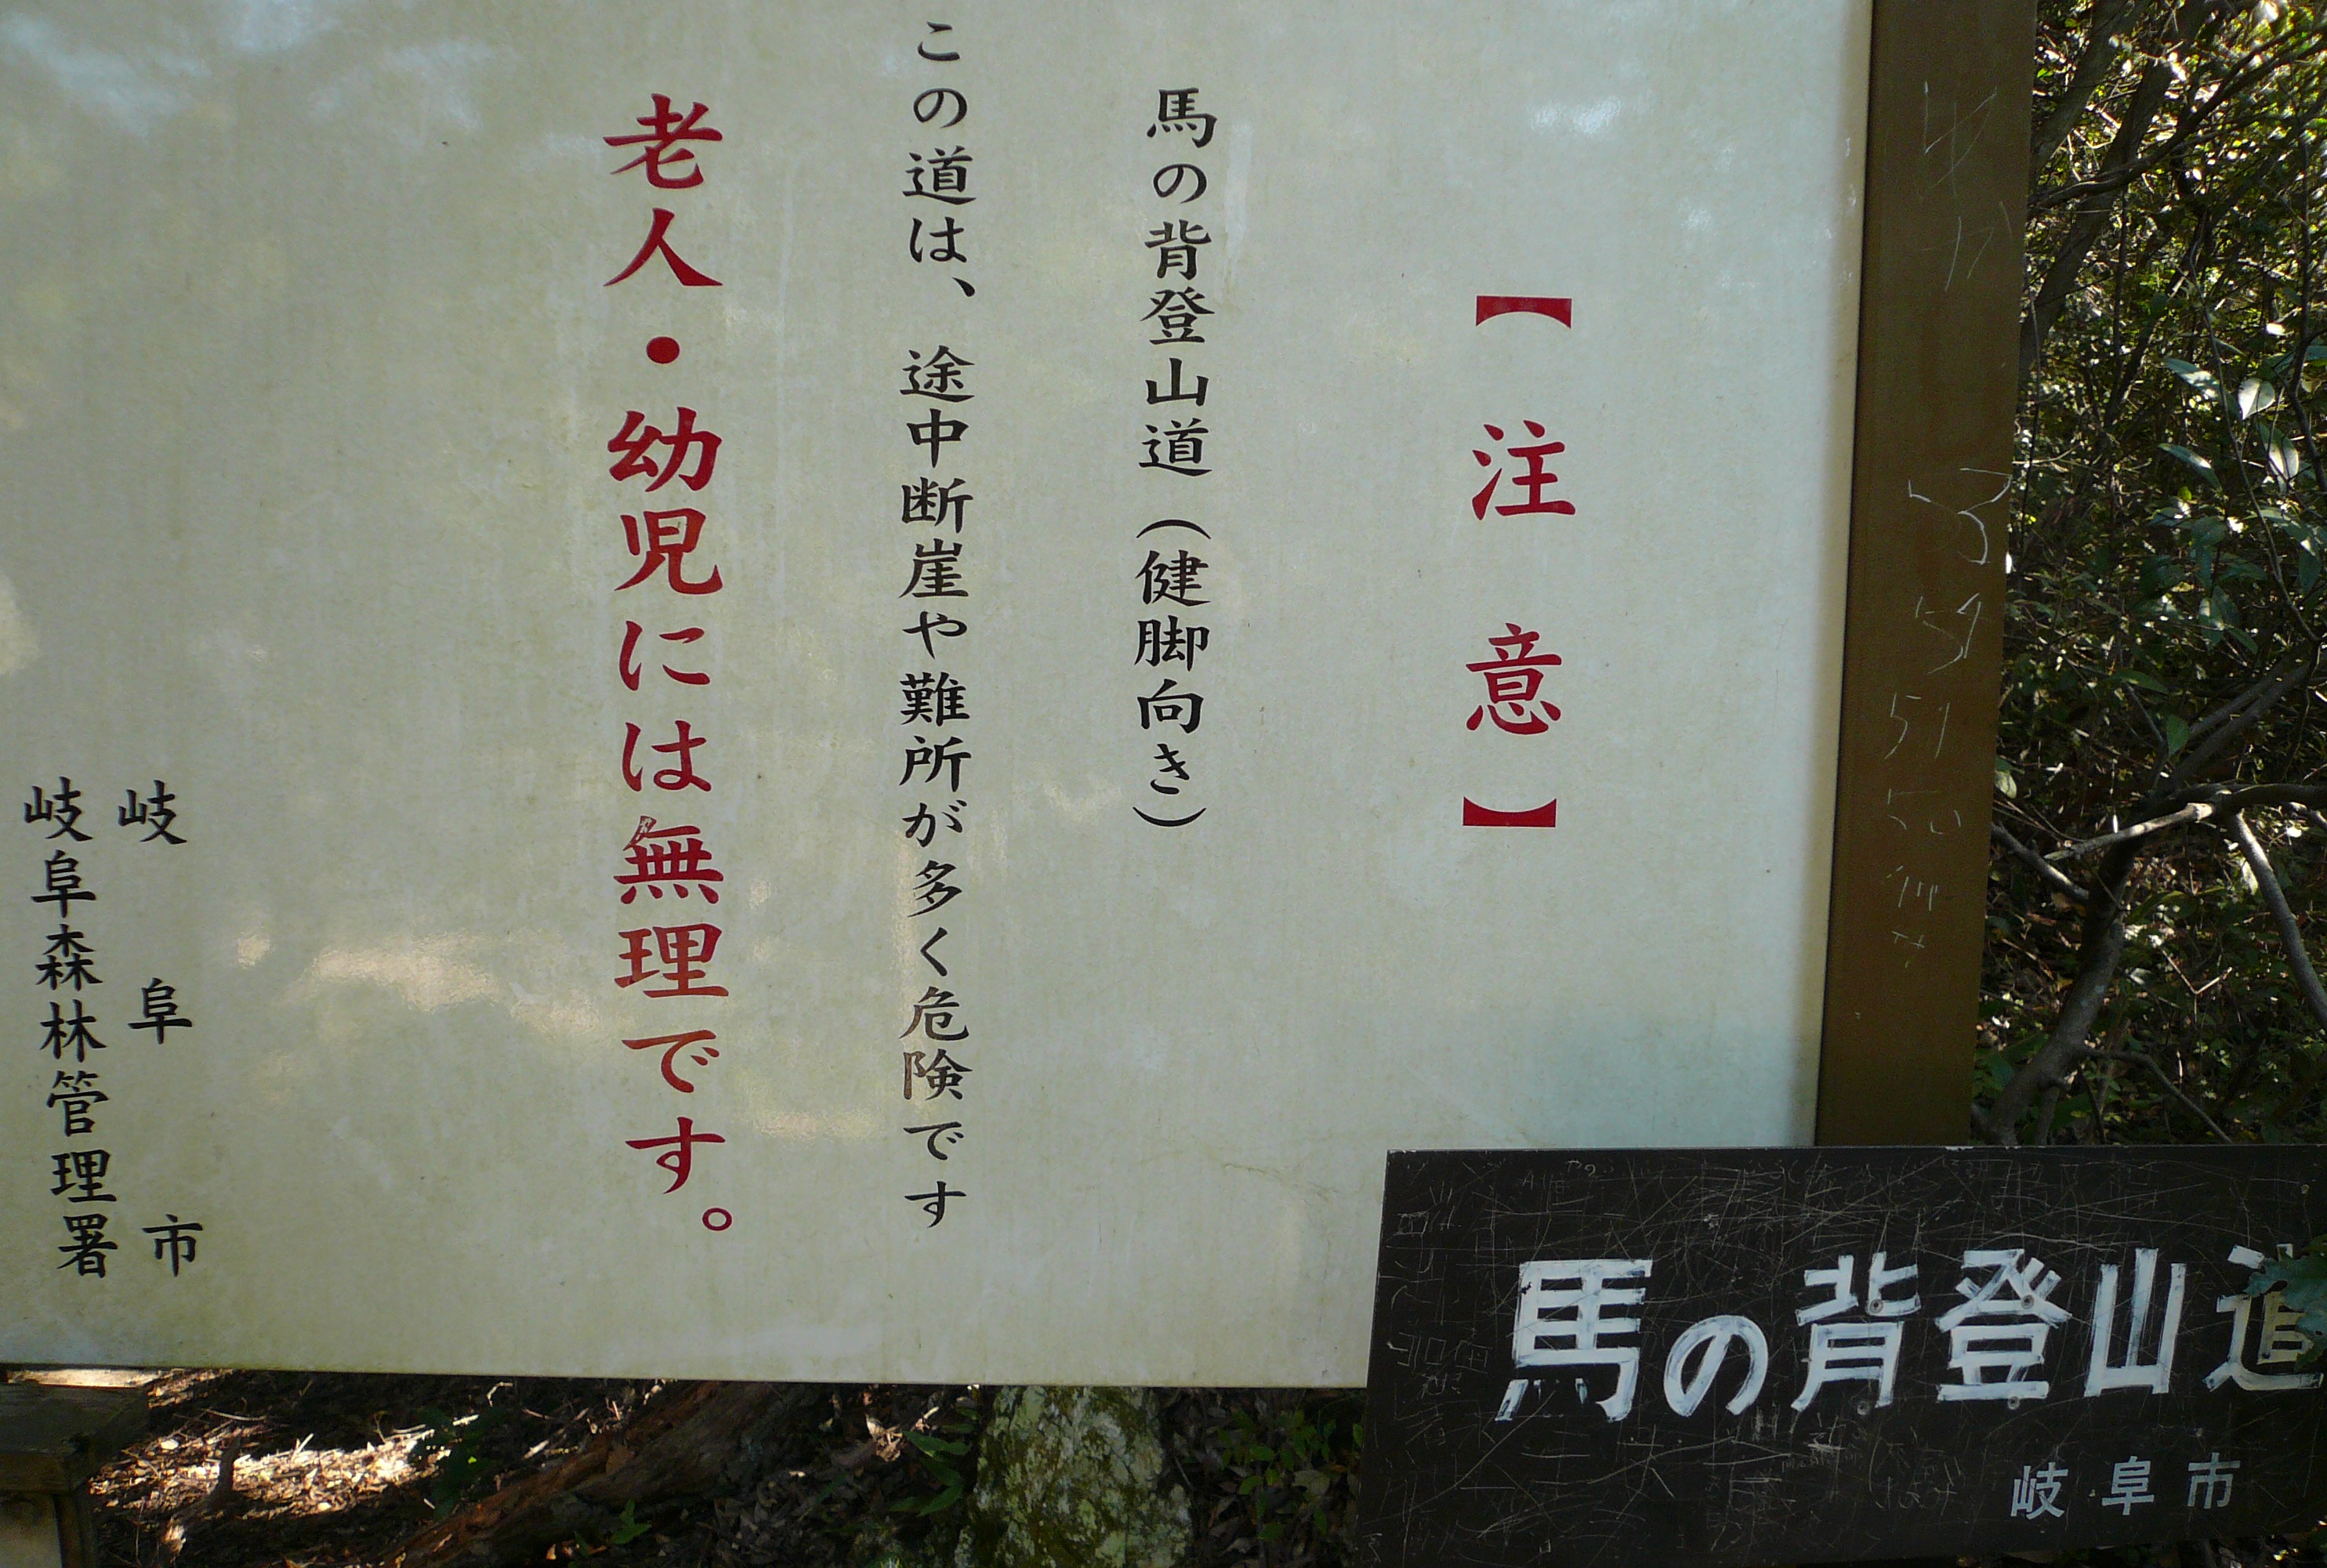 【注意】
馬の背登山道(健脚向き)
この道は、途中断崖や難所が多く危険です
老人・幼児には無理です。
岐阜市
岐阜森林管理署
馬の背登山道
岐阜市